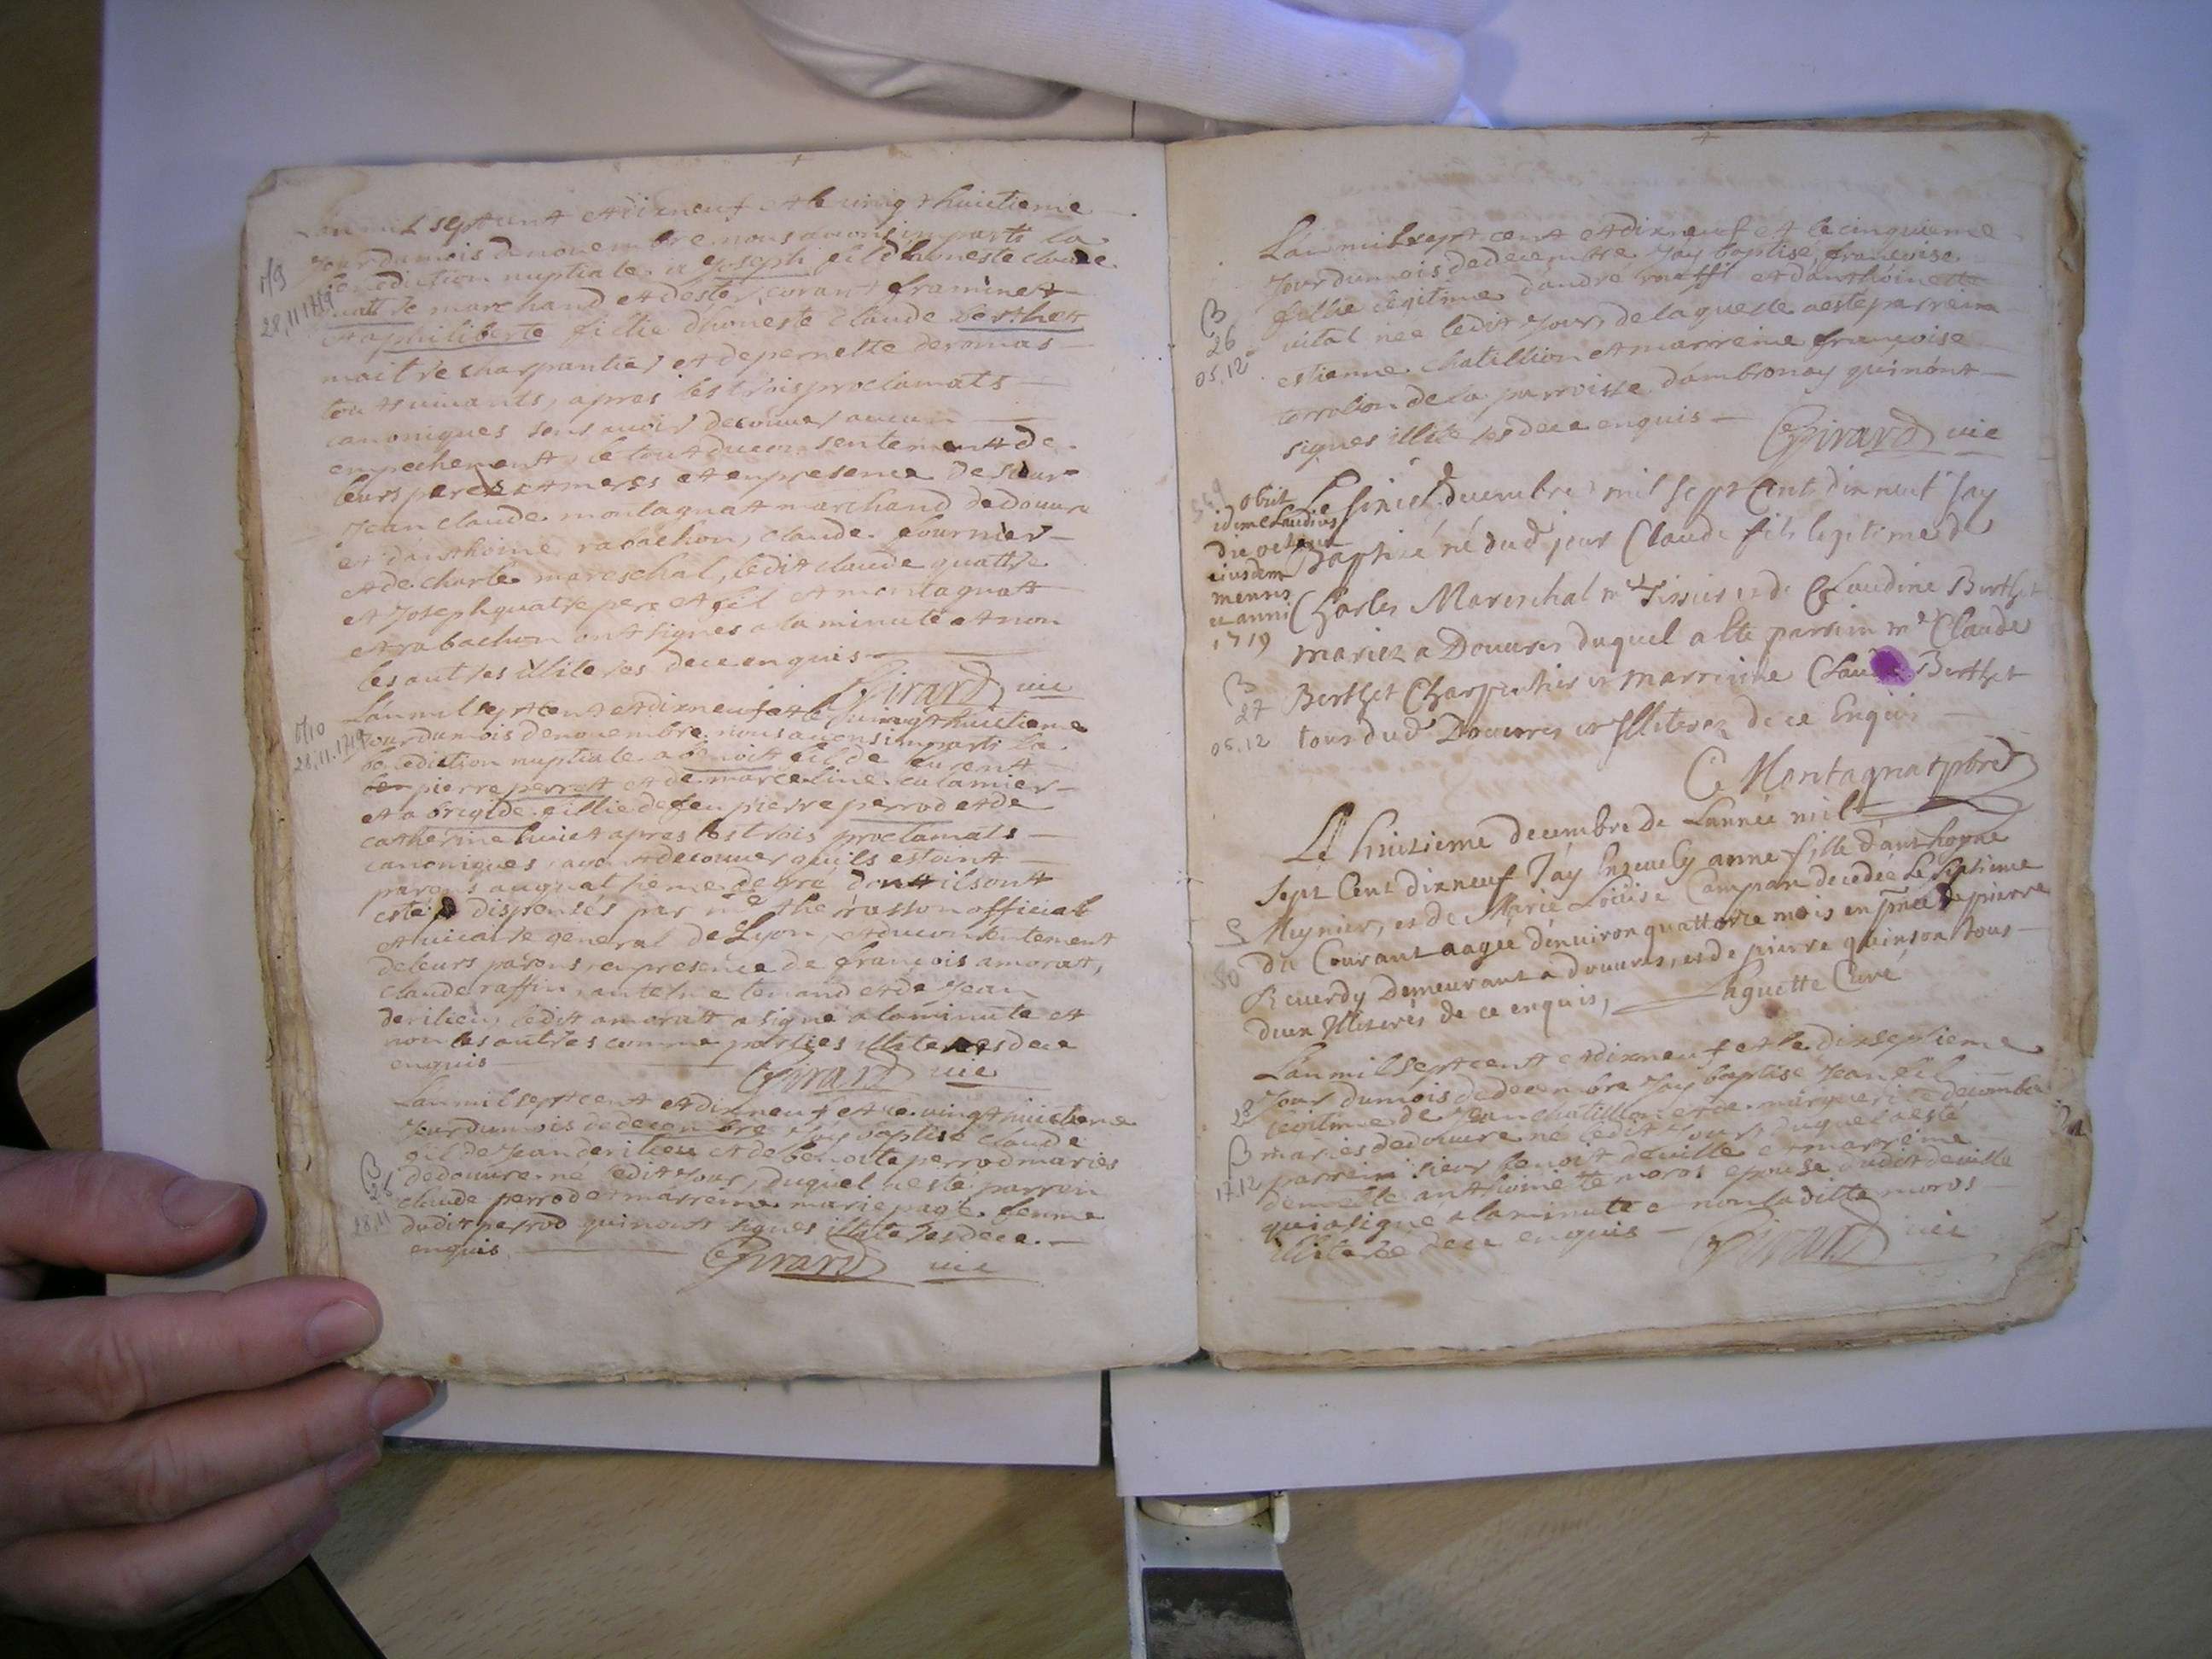 Lan mil sept cent et dixneuf et le vingt huictieme
jour du mois de novembre nous avons imparti la
benediction nuptiale a Joseph fil d'honeste claude
quattre marchand et d'ester curant framinet
et a philiberte fillie d'honeste Claude berthet
maitre charpantier et de pernette deromas
touts vivants, apres les trois proclamats
canoniques sans avoir decouver aucun
empechement, le tout du consentement de
leurs peres et meres et en presence de sieur
Jean claude montagnat marchand de douvre
et d'anthoine rabachon, claude fournier
et de charle mareschal, ledit claude quattre
et Joseph quattre pere et fil et montagnat
et rabachon ont signes a la minute et non
les autres illiteres de ce enquis
Girard vic
M9
28.11.1719
Lan mil sept cent et dixneuf et le vingt huictieme
jour du mois de novembre nous avons imparti la
benediction nuptiale a benoit fil de
pierre perret et de marceline calamier
et a brigide fillie de feu pierre perrod et de
catherine huiet apres les trois proclamats
canoniques, avant decouver qu'ils estoint
parens au quatrieme degré dont ils ont
esté dispensés par me therrasson official
et vicaire general de Lyon, et du consentement
de leurs parens, en presence de françois amorat,
claude raffin, antelme tenand et de Jean
derilieu, ledit amoratt a signé a la minute et
non les autres comme parties illiteres de ce
enquis
Girard vic
M10
28.11.1719
Lan mil sept cent et dixneuf et le vingt huictieme
jour du mois de decembre j'ay baptisé claude
fil de Jean derilieu et de benoite perrod mariés
de douvre né ledit jour, duquel a esté parrein
claude perrod et marreine marie page femme
dudit perrod qui n'ont signes illiteres de ce
enquis
Girard vic
B
25
28.11
Lan mil sept cent et dixneuf et le cinquieme
jour du mois de decembre J'ay baptisé françoise
fillie legitime d'andré ruffi et d'anthoinette
vital née ledit jour, de laquelle a esté parrein
estienne chatillion et marreine françoise
torrolion de la parroisse d'ambronay qui n'ont
signes illiteres de ce enquis
Girard vic
B
26
05.12
Le sixie decembre mil sept Cent dix neuf Jay
Baptizé né dud jour Claude fils legitime de
Charles Mareschal me Tissier et de Claudine Berthet
mariez a Douvres duquel a ete parrein me Claude
Berthet Charpentier et marreine Claude Berthet
tous dud Douvres et Illiterez de ce Enquis
C Montagnat pbre
obiit
idem Claudius
die octava
eiusdem
mensis
et anni
1719
B
27
06.12
Le huizieme decembre de L'année mil
sept Cent dixneuf J'ay Ensevely anne fille d'anthoyne
Meynier, et de Marie Loüise Campan decedée Le septieme
du Courant aagée d'environ quattorze mois en pnce de pierre
Reverdy Demeurant a douvres, et de pierre quinson tous
deux Illiterés de ce enquis,
Laguette Curé
S
50
Lan mil sept cent et dixneuf et le dix septieme
jour du mois de decembre J'ay baptisé Jean fil
legitime de Jean chatillon et de marguerite decombe
mariés de douvre né ledit jour, duquel a esté
parrein sieur benoit deville et marreine
demelle anthoinette moros epouse dudit deville
qui a signé a la minute et non laditte moros
illiterée de ce enquis
Girard vic
28
B
17.12